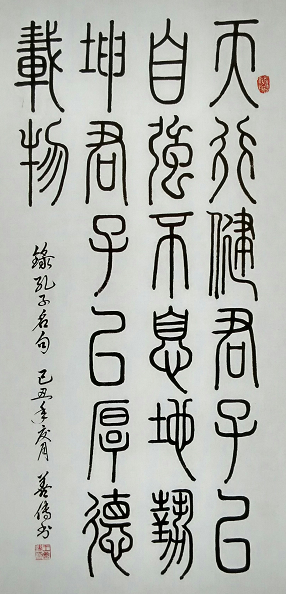 天行健君子以
自強不息地勢
坤君子以厚德
載物
錄孔子名句 己丑年 月 善 书